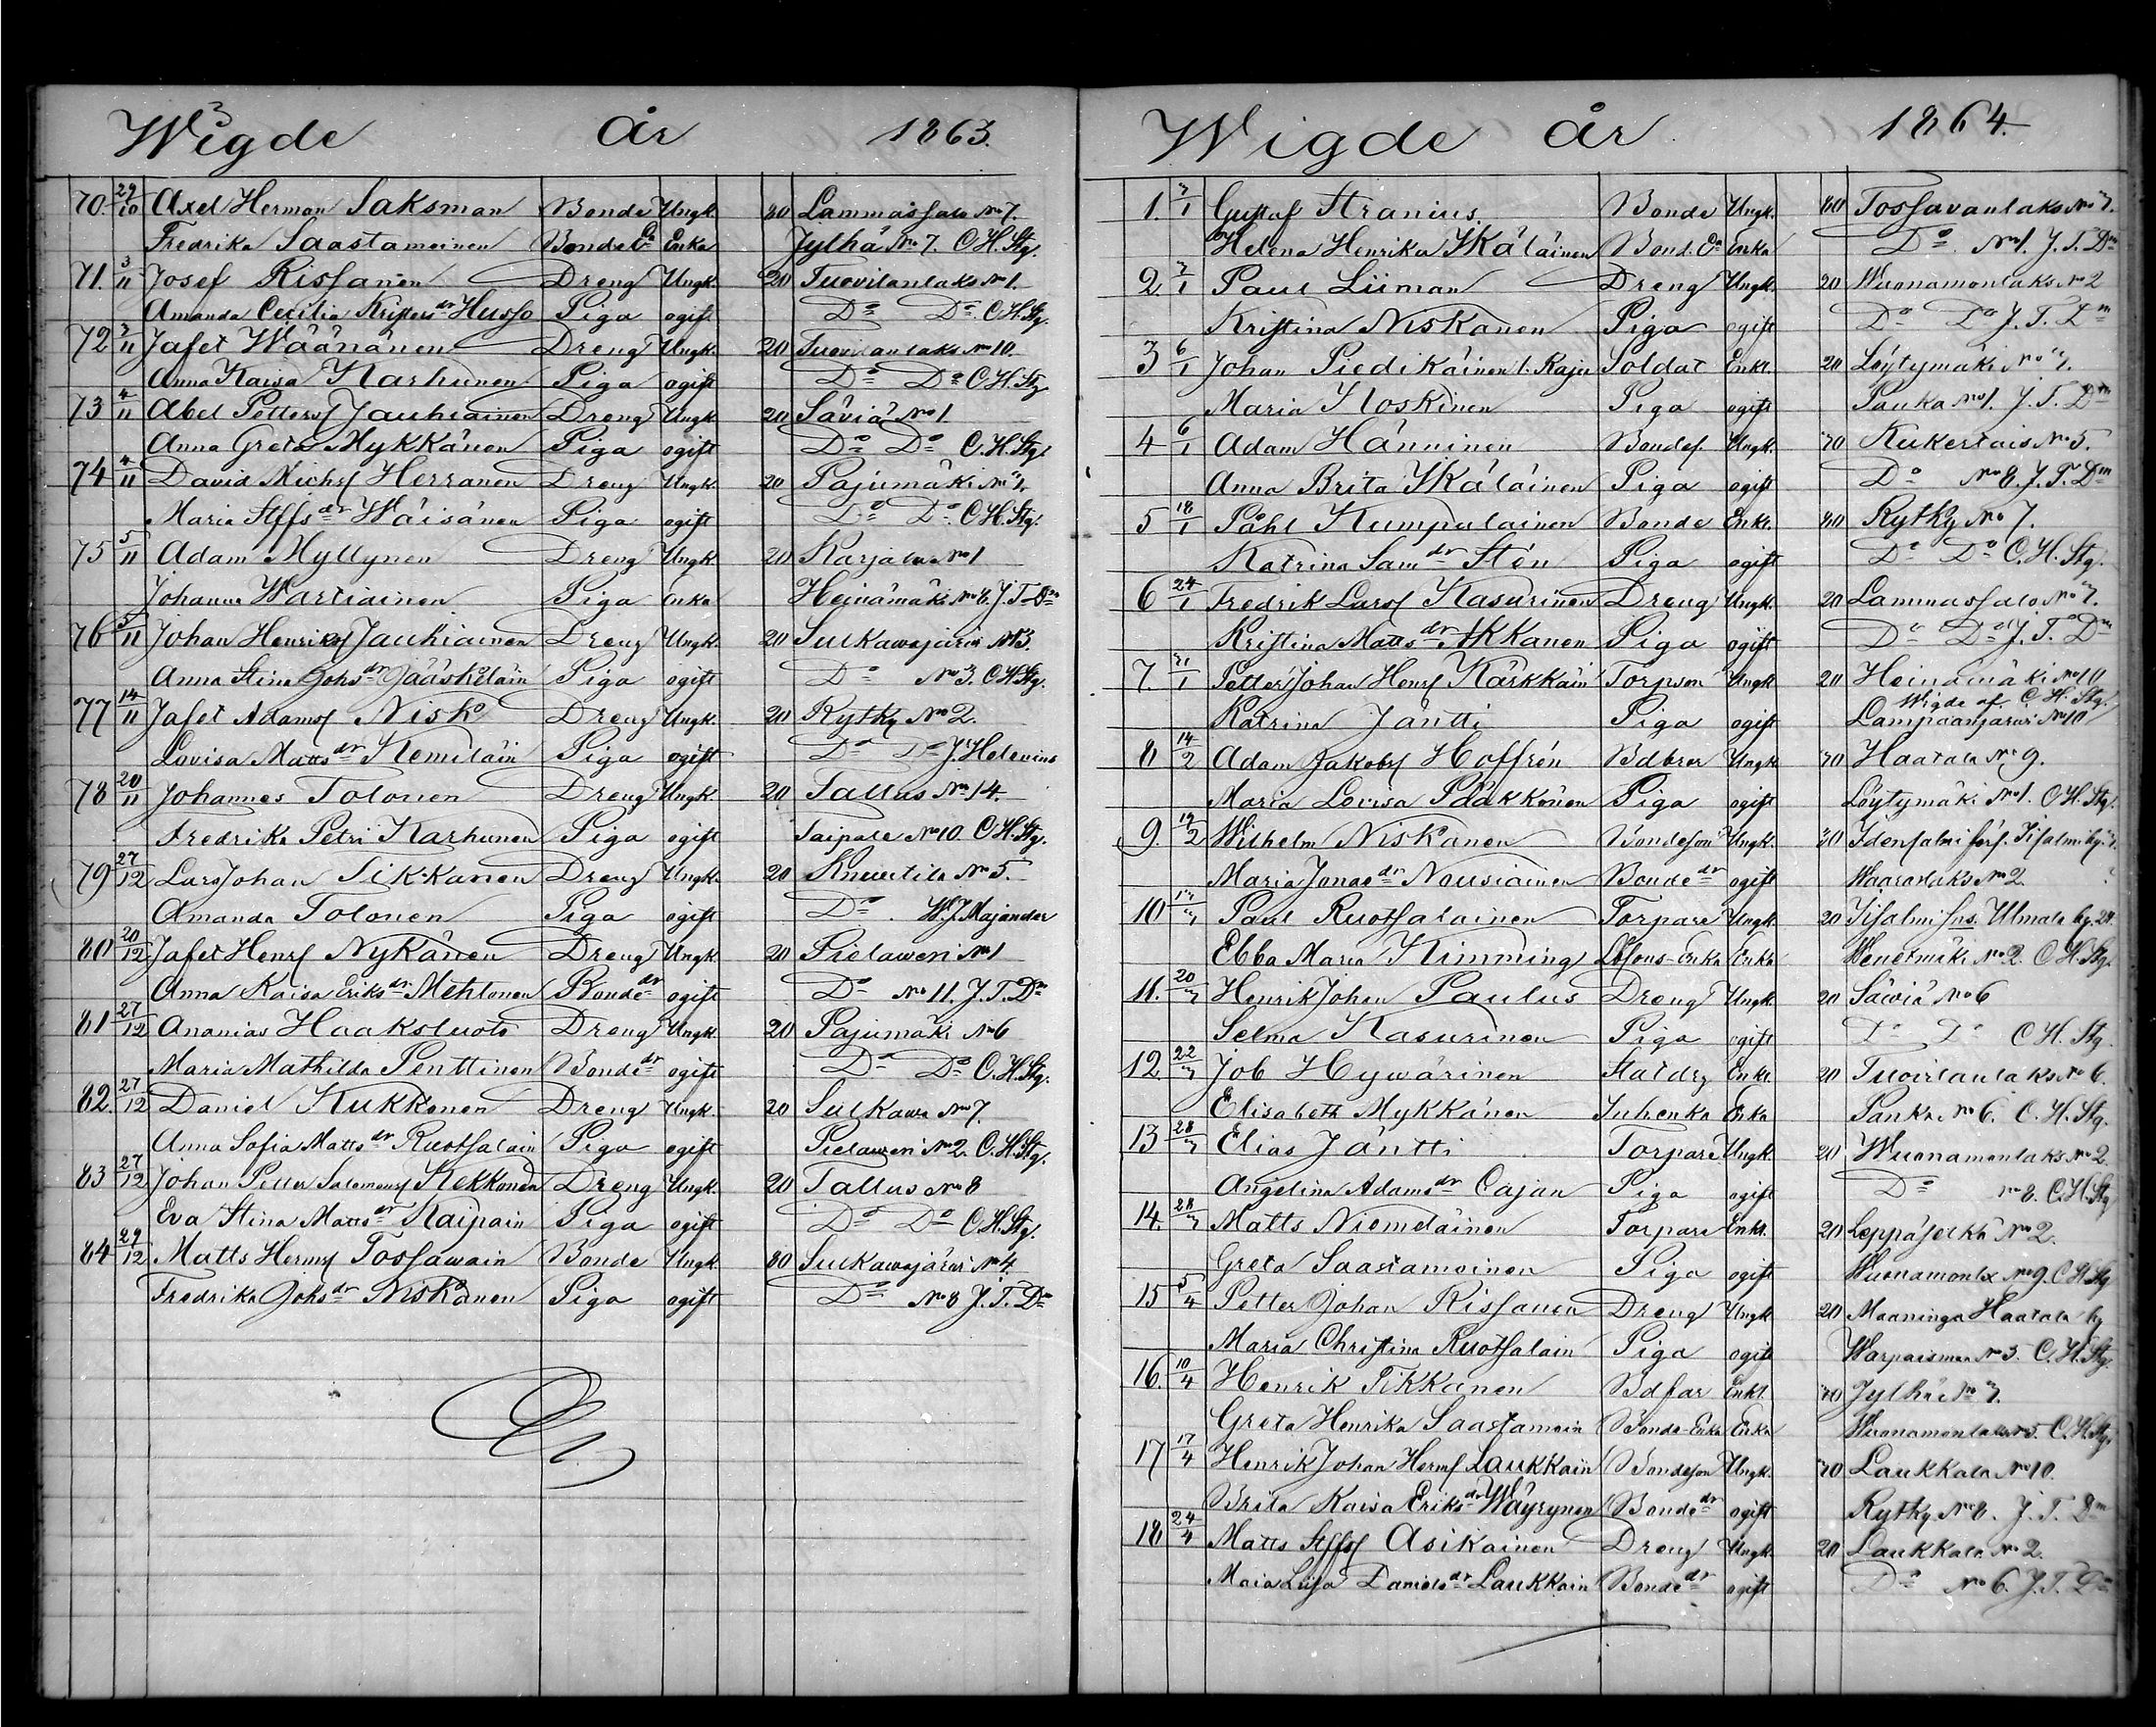 Wigde år 1863.
70. 29/10 Axel Herman Saksman Bonde Ungk. 80 Lammassalo No 7.
Fredrika Saastamoinen Bonde Ea Enka Jylhä No 7. C.H. Stg.
71. 3/11 Josef Rissanen Dreng Ungk. 20 Tuovilanlaks No 1.
Amanda Cecilia Kristers dr Husso Piga ogift Do Do C.H. Stg.
72 3/11 Jafet Wäänänen Dreng Ungk. 20 Tuovilanlaks No 10.
Anna Kaisa Karhunen Piga ogift Do Do C.H. Stg
73 4/11 Abel Petterss Jauhiainen Dreng Ungk 20 Säviä No 1.
Anna Greta Mykkänen Piga ogift Do Do C.H. Stg.
74 4/11 David Michss Herranen Dreng Ungk. 20 Pajumäki No 7.
Maria Stffs dr Wäisänen Piga ogift Do Do C.H. Stg.
75 5/11 Adam Myllynen Dreng Ungk. 20 Karjala No 1
Johanna Wartiainen Piga Enka Heinämäki No 8. J.T. Dm
76 5/11 Johan Henrikss Jauhiainen Dreng Ungk. 20 Sulkawajärvi No 3.
Anna Stina Johs dr Jääskeläin Piga ogift Do No 3. C.H. Stg.
77 14/11 Jafet Adamss Nisk Dreng Ungk. 20 Rytky No 2.
Lovisa Matts dr Kemiläin Piga ogift Do Do J. Helenius
78 20/11 Johannes Tolonen Dreng Ungk. 20 Tallus No 14.
Fredrika Petri Karhunen Piga ogift Taipale No 10. C.H. Stg.
79 27/12 Lars Johan Tikkanen Dreng Ungk. 20 Kheurtila No 5.
Amanda Tolonen Piga ogift Do W.J. Majander
80 20/12 Jafet Henrs Nykänen Dreng Ungk. 20 Pielawesi No 1
Anna Kaisa Eriks dr Mehtonen Bonde dr ogift Do No 11. J.T. Dm
81 27/12 Ananias Haaksluoto Dreng Ungk. 20 Pajumäki No 6
Maria Mathilda Penttinen Bonde dr ogift Do Do C.H. Stg.
82. 27/12 Daniel Kukkonen Dreng Ungk. 20 Sulkawa No 7.
Anna Sofia Matts dr Ruotsalain Piga ogift Pielawesi No 2. C.H. Stg.
83 27/12 Johan Petter Salomonss Kekkonen Dreng Ungk. 20 Tallus No 8
Eva Stina Matts dr Raipain Piga ogift Do Do C.H. Stg.
84 29/12 Matts Hermss Tossawain Bonde Ungk. 80 Sulkawajärvi No 4.
Fredrika Johs dr Niskanen Piga ogift Do No 8 J.T. Dm
Wigde år 1864.
1. 3/1 Gustaf Stranius. Bonde Ungk. 80 Tossavanlaks No 7.
Helena Henrika Ikäläinen Bond. Ea Enka Do No 1. J.T. Dm
2 3/1 Paul Liiman Dreng Ungk. 20 Wuonamonlaks No 2
Kristina Niskanen Piga ogift Do Do J.T. Dm
3 6/1 Johan Piedikäinen l. Raju Soldat Enkl. 20 Löytymäki No 7.
Maria Kloskinen Piga ogift Pauka No 1. J.T. Dm
4 6/1 Adam Hänninen Bondes. Ungk. 70 Kukertais No 5.
Anna Brita Ikäläinen Piga ogift Do No 8. J.T. Dm
5 18/1 Påhl Kumpulainen Bonde Enkl. 80 Rytky No 7.
Katrina Sam dr Stén Piga ogift Do Do C.H. Stg.
6 24/1 Fredrik Larss Kasurinen Dreng Ungk. 20 Lammassalo No 7.
Kristina Matts dr Ikkanen Piga ogift Do Do J.T. Dm
7. 31/1 Petter Johan Henrs Kärkkäin Torpson Ungk 20 Heinämäki No 10
Wigde af C.H. Stg.
Katrina Jäntti Piga ogift Lampaanjärvi No 10
8 14/2 Adam Jakobss Hoffrén Bdbror Ungk 70 Haatala No 9.
Maria Lovisa Pääkkönen Piga ogift Löytymäki No 1. C.H. Stg.
9. 19/2 Wilhelm Niskanen Bondeson Ungk. 30 Idensalmi förs. Iisalmi by. 7.
Maria Jonas dr Nousiainen Bonde dr ogift Waaraslaks No 2.
10 Paul Ruotsalainen Torpare Ungk. 20 Iisalmi fns. Ulmala by. 24.
Ebba Maria Kimming Enka Wenetmäki No 2. C.H. Stg.
11. 20/3 Henrik Johan Paulus Dreng Ungk. 20 Säwiä No 6
Selma Kasurinen Piga ogift Do Do C.H. Stg.
12. 22/3 Job Hywärinen Statdrg Enkl. 20 Tuovilanlaks No 6.
Elisabeth Mykkänen Inhenka Enka Panka No 6. C.H. Stg.
13 28/3 Elias Jäntti Torpare Ungk. 20 Wuonamonlaks No 2.
Angelina Adams dr Cajan Piga ogift Do No 8. C.H. Stg
14. 28/3 Matts Niemeläinen Torpare Enkl. 20 Leppäselkä No 2.
Greta Saastamoinen Piga ogift Wuonamonlx No 9. C.H. Stg
15 5/4 Petter Johan Rissanen Dreng Ungk 20 Maaninga Haatala by
Maria Christina Ruotsalain Piga ogift Warpaisman No 3. C.H. Stg.
16. 10/4 Henrik Tikkanen Bdfar Enkl. 70 Jylhä No 7.
Greta Henrika Saastamoin Bonde-Enka Enka Wuonamonlaks No 5. C.H. Stg.
17 17/4 Henrik Johan Hermss Laukkain Bondeson Ungk. 70 Laukkala No 10.
Brita Kaisa Eriks dr Wäyrynen Bonde dr ogift Rytky No 8. J.T. Dm
18 24/4 Matts Stffss Asikainen Dreng Ungk. 20 Laukkala No 2.
Maia Liisa Daniels dr Laukkain Bonde dr ogift Do No 6. J.T. Dm